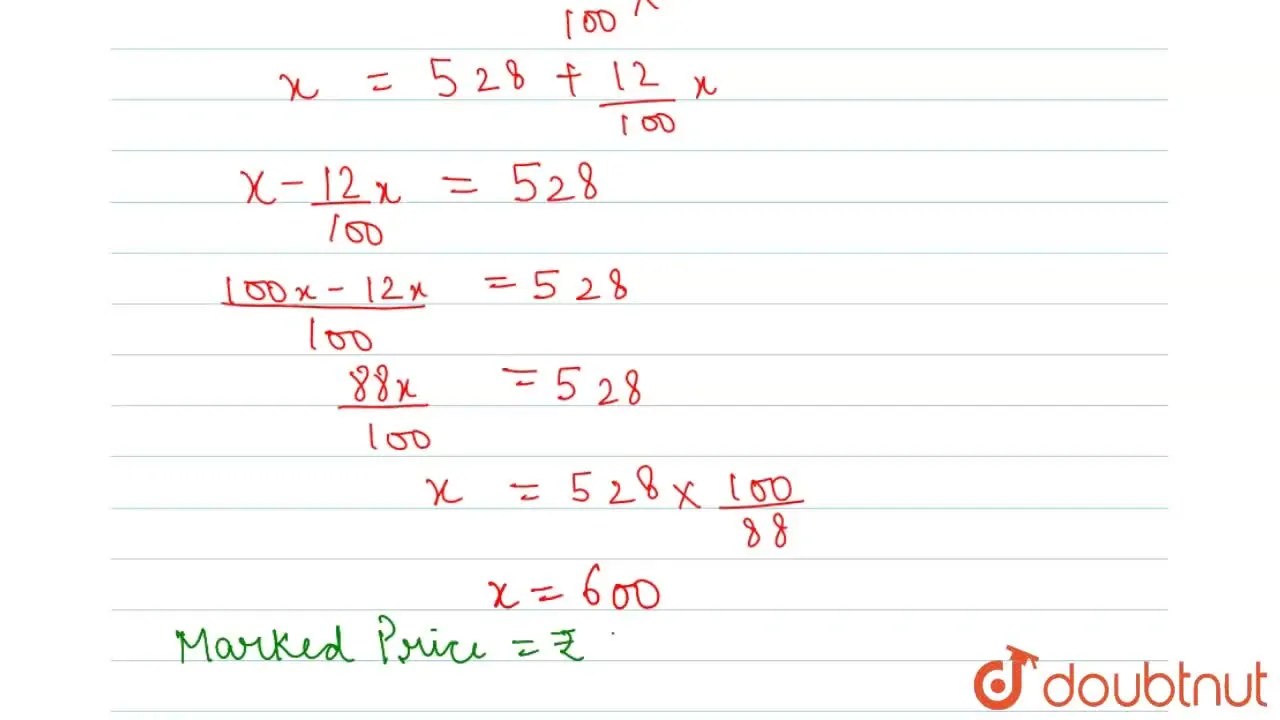 100 x
x = 528 + 12/100 x
x - 12x/100 = 528
100x - 12x/100 = 528
88x/100 = 528
x = 528 × 100/88
x = 600
Marked Price = ₹
doubtnut